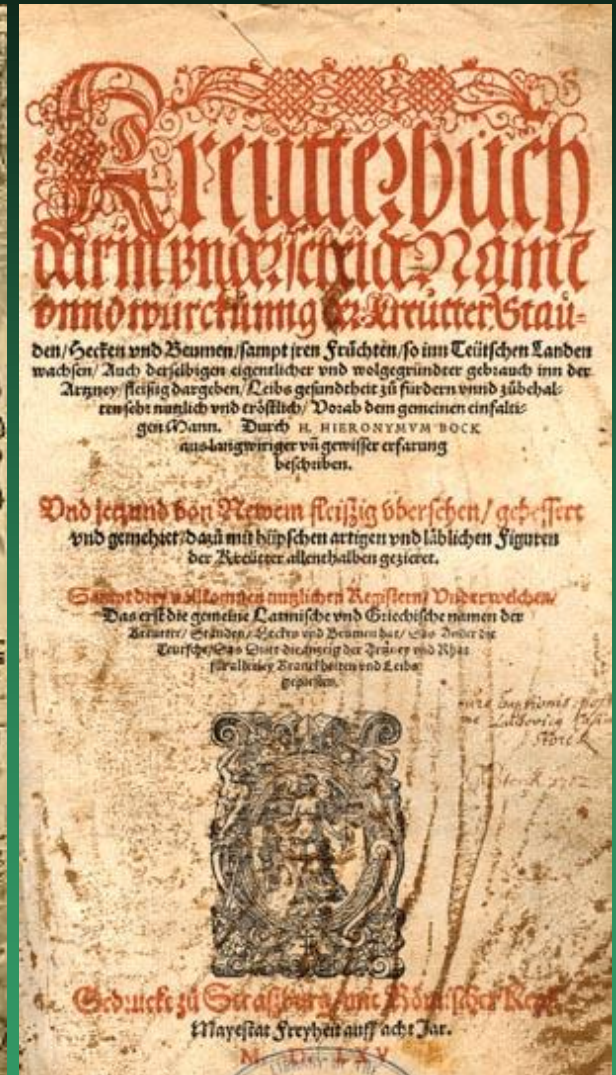 Kreütterbuch
darin vnderscheidt Name
vnnd würckung der Kreütter Stau=
den/Hecken vnd Beumen/sampt jren Früchten/so inn Teütschen Landen
wachsen/ Auch derselbigen eigentlicher vnd wolgegründter gebrauch inn der
Artzney/fleißig dargeben/Leibs gesundtheit zů fürdern vnnd zůbehal=
ten sehr nutzlich vnd tröstlich/ Vorab dem gemeinen einfalti=
gen Mann. Durch H. HIERONYMVM BOCK
aus langwiriger vñ gewisser erfarung
beschriben.
Vnd jetzund von Newem fleißig vbersehen/ gebessert
vnd gemehret/dazů mit hüpschen artigen vnd läblichen Figuren
der Kreütter allenthalben gezieret.
Sampt drey vollkommen nutzlichen Registern/ Vnder welchen/
Das erst die gemeine Latinische vnd Griechische namen der
Kreutter/ Stauden/ Hecken vnd Beumen hat/ Das Ander die
Teutsche/Das Dritt die anzeig der Artzney vnd Rhat
für allerley Kranckheiten vnd Leibs
gepresten.
Gedruckt zů Straßburg/ mit Römischer Keys.
Mayestat Freyheit auff acht Jar.
M. D. LXV